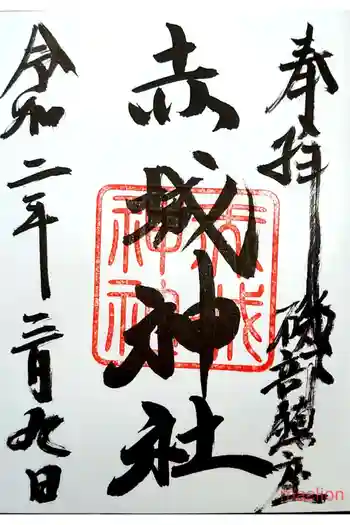 奉拝
磯部鎮座
赤城神社
赤城神社
令和二年三月九日